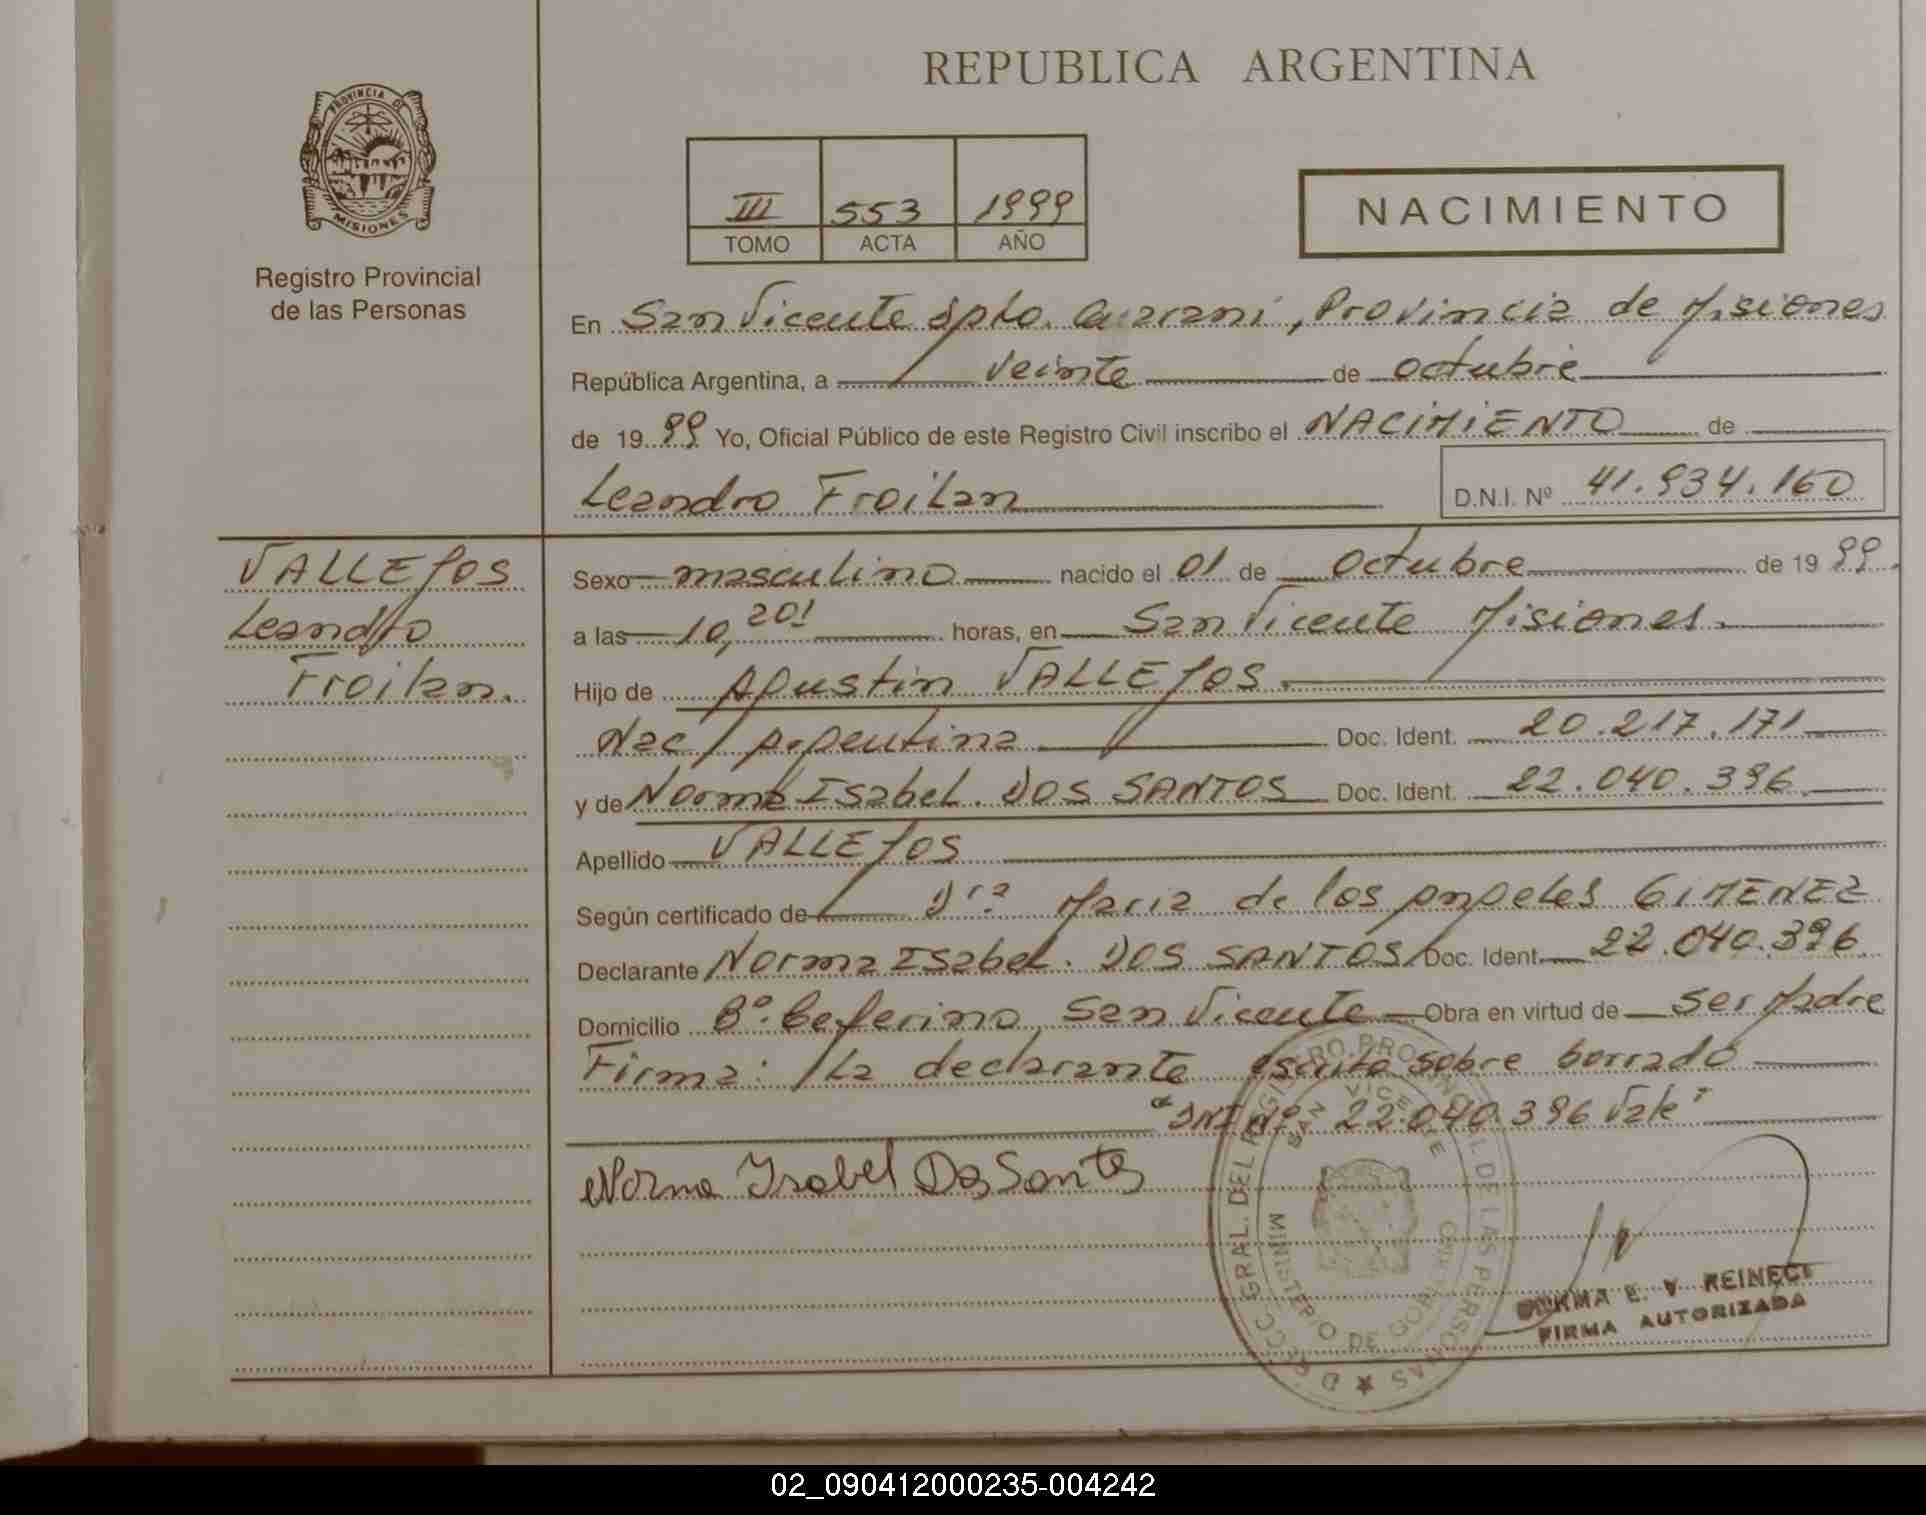 REPUBLICA ARGENTINA
PROVINCIA DE
MISIONES
Registro Provincial
de las Personas
III 553 1999
TOMO ACTA AÑO
NACIMIENTO
En San Vicente Dpto. Guarani, Provincia de Misiones
República Argentina, a veinte de octubre
de 1999 Yo, Oficial Público de este Registro Civil inscribo el NACIMIENTO de
Leandro Froilan D.N.I. Nº 41.934.160
VALLEJOS
Leandro
Froilan.
Sexo masculino nacido el 01 de Octubre de 1999.
a las 10,20' horas, en San Vicente Misiones.
Hijo de Agustin VALLEJOS.
Nac. Argentina Doc. Ident. 20.217.171
y de Norma Isabel. DOS SANTOS Doc. Ident. 22.040.396
Apellido VALLEJOS
Según certificado de Dra Maria de los Angeles GIMENEZ
Declarante Norma Isabel. DOS SANTOS Doc. Ident. 22.040.396.
Domicilio Bº. Ceferino, San Vicente Obra en virtud de ser Madre
Firma: La declarante escrito sobre borrado
"DNI Nº 22.040.396 Vale"
Norma Isabel Dos Santos
DCCION GRAL. DEL REGISTRO PROVINCIAL DE LAS PERSONAS
SAN VICENTE
MINISTERIO DE GOBIERNO
NORMA E. V. REINECK
FIRMA AUTORIZADA
02_090412000235-004242